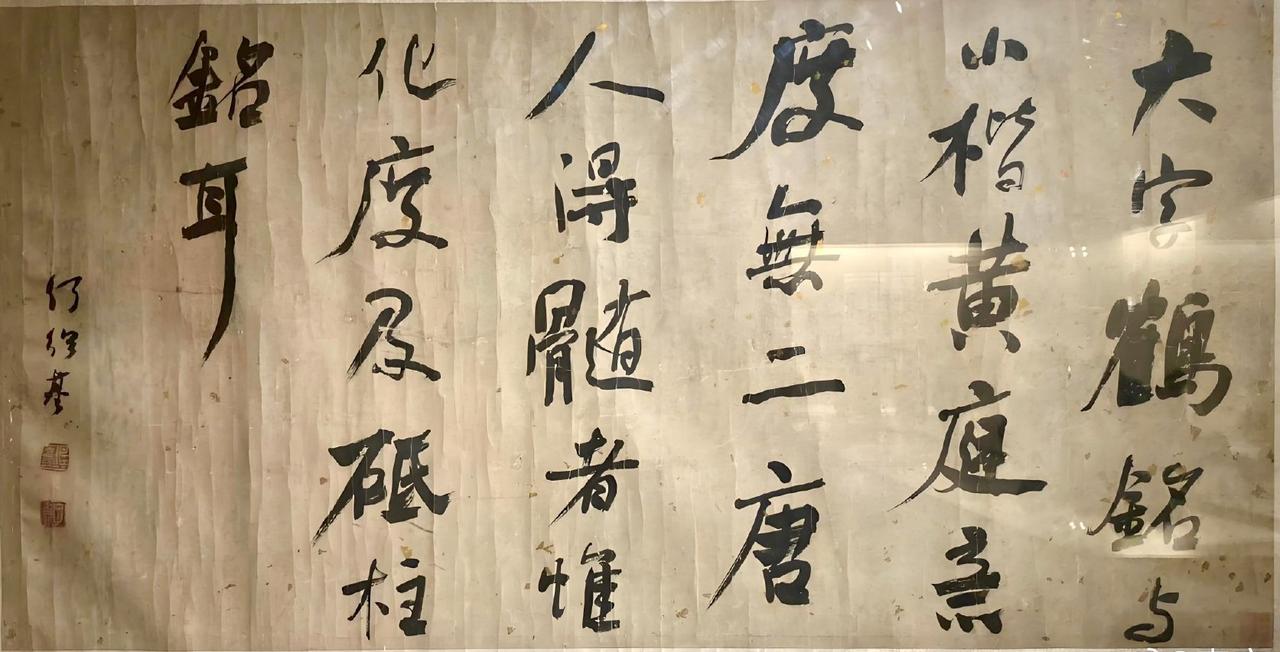 大字鶴銘与
小楷黄庭意
度無二唐
人得髓者惟
化度及砥柱
銘耳
何紹基